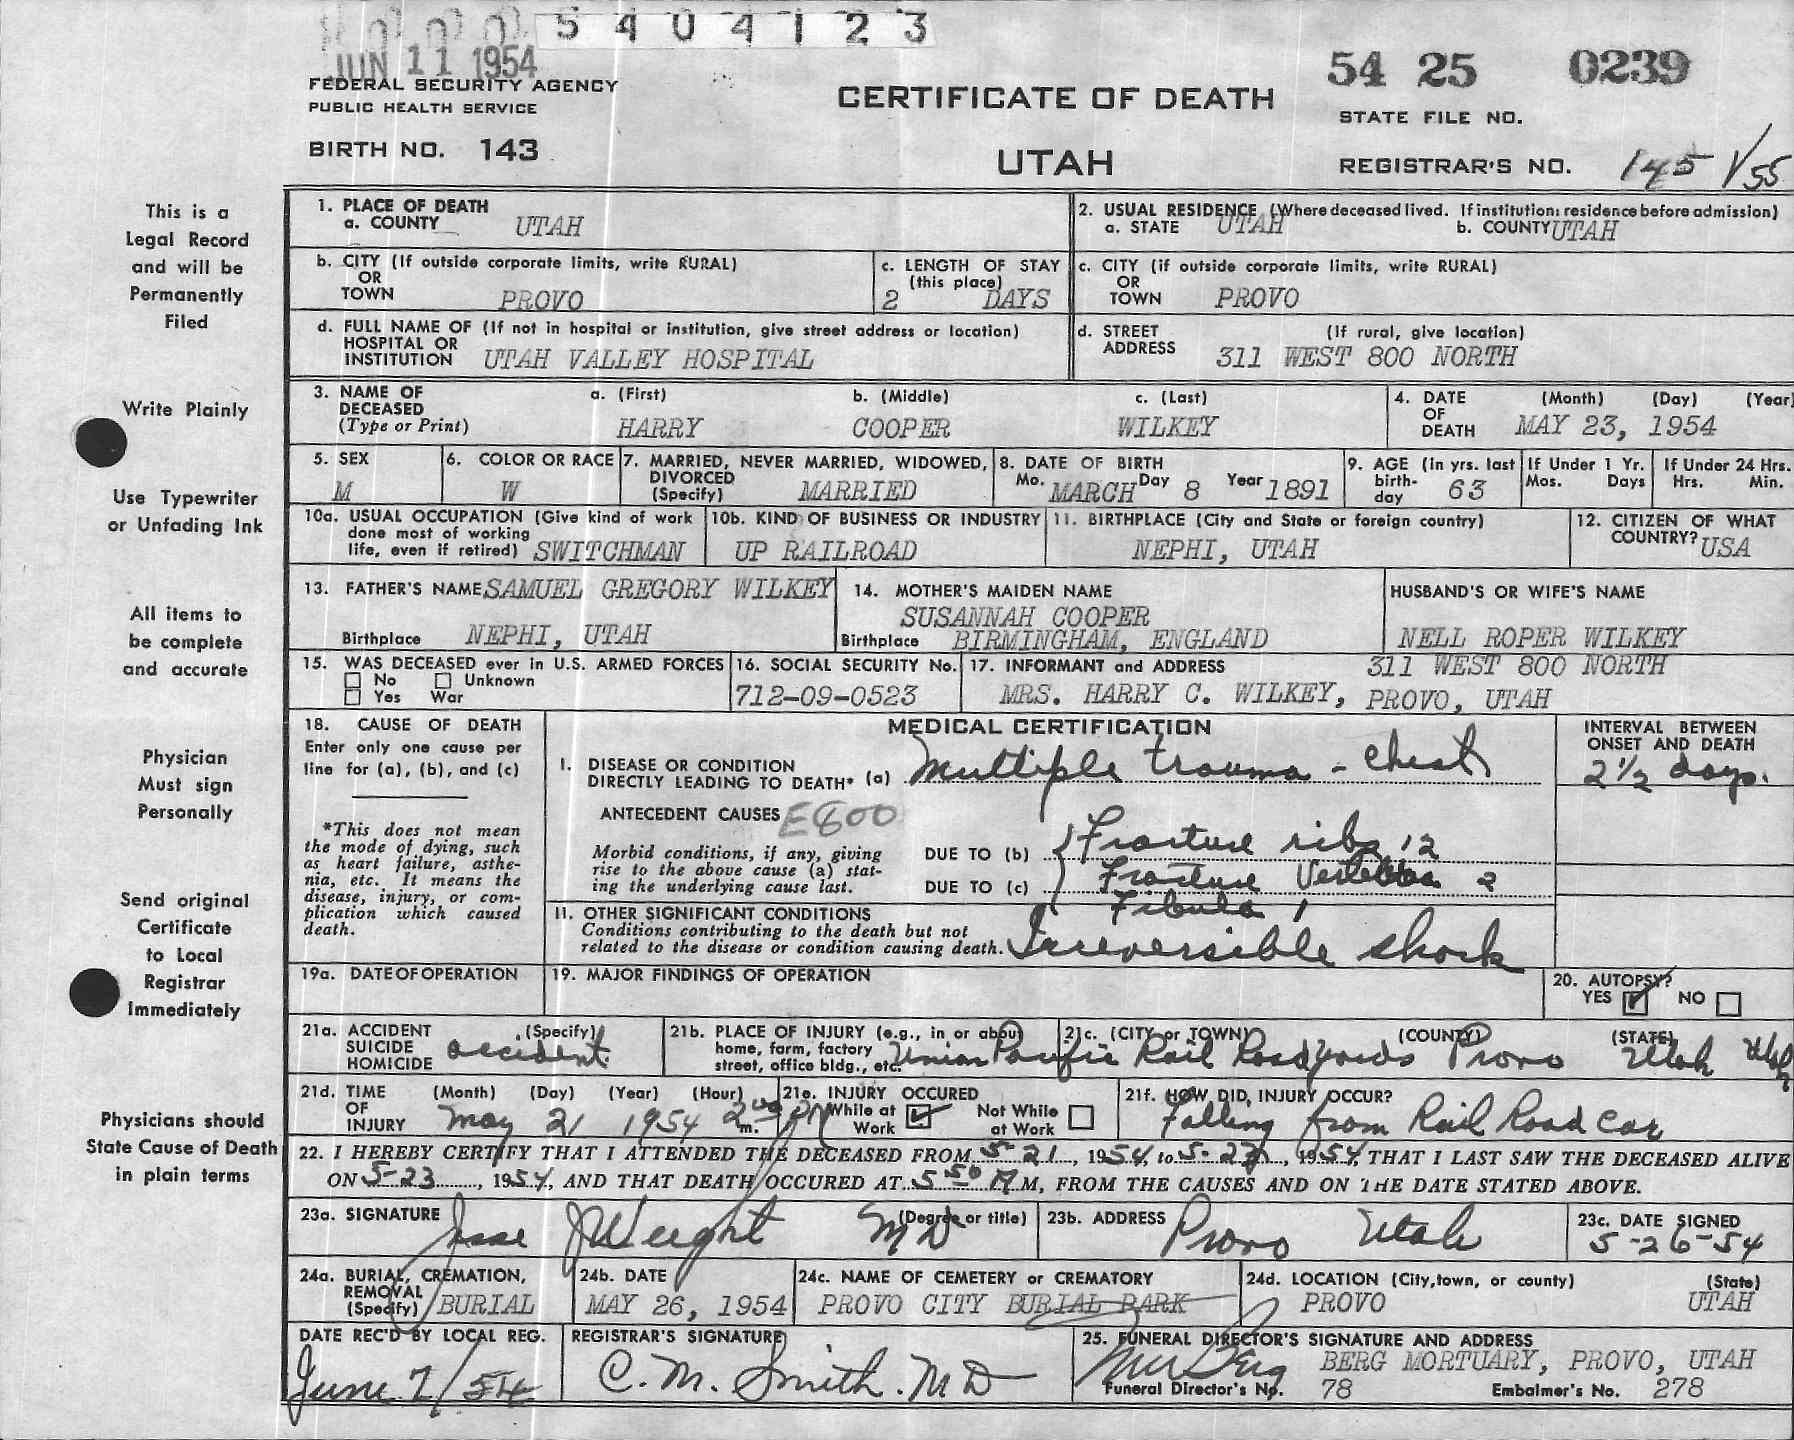 5404123
JUN 11 1954
54 25 0239
FEDERAL SECURITY AGENCY
PUBLIC HEALTH SERVICE
CERTIFICATE OF DEATH
STATE FILE NO.
BIRTH NO. 143
UTAH
REGISTRAR'S NO. 145 1/55
This is a
Legal Record
and will be
Permanently
Filed
Write Plainly
Use Typewriter
or Unfading Ink
All items to
be complete
and accurate
Physician
Must sign
Personally
Send original
Certificate
to Local
Registrar
Immediately
Physicians should
State Cause of Death
in plain terms
1. PLACE OF DEATH
a. COUNTY UTAH
2. USUAL RESIDENCE (Where deceased lived. If institution: residence before admission)
a. STATE UTAH b. COUNTY UTAH
b. CITY (If outside corporate limits, write RURAL)
OR
TOWN PROVO
c. LENGTH OF STAY
(this place)
2 DAYS
c. CITY (if outside corporate limits, write RURAL)
OR
TOWN PROVO
d. FULL NAME OF (If not in hospital or institution, give street address or location)
HOSPITAL OR
INSTITUTION UTAH VALLEY HOSPITAL
d. STREET (If rural, give location)
ADDRESS 311 WEST 800 NORTH
3. NAME OF a. (First) b. (Middle) c. (Last)
DECEASED
(Type or Print) HARRY COOPER WILKEY
4. DATE (Month) (Day) (Year)
OF
DEATH MAY 23, 1954
5. SEX
M
6. COLOR OR RACE
W
7. MARRIED, NEVER MARRIED, WIDOWED,
DIVORCED
(Specify) MARRIED
8. DATE OF BIRTH
Mo. MARCH Day 8 Year 1891
9. AGE (In yrs. last
birth-
day 63
If Under 1 Yr.
Mos. Days
If Under 24 Hrs.
Hrs. Min.
10a. USUAL OCCUPATION (Give kind of work
done most of working
life, even if retired) SWITCHMAN
10b. KIND OF BUSINESS OR INDUSTRY
UP RAILROAD
11. BIRTHPLACE (City and State or foreign country)
NEPHI, UTAH
12. CITIZEN OF WHAT
COUNTRY? USA
13. FATHER'S NAME SAMUEL GREGORY WILKEY
Birthplace NEPHI, UTAH
14. MOTHER'S MAIDEN NAME
SUSANNAH COOPER
Birthplace BIRMINGHAM, ENGLAND
HUSBAND'S OR WIFE'S NAME
NELL ROPER WILKEY
15. WAS DECEASED ever in U.S. ARMED FORCES
No Unknown
Yes War
16. SOCIAL SECURITY No.
712-09-0523
17. INFORMANT and ADDRESS 311 WEST 800 NORTH
MRS. HARRY C. WILKEY, PROVO, UTAH
18. CAUSE OF DEATH
Enter only one cause per
line for (a), (b), and (c)
*This does not mean
the mode of dying, such
as heart failure, asthe-
nia, etc. It means the
disease, injury, or com-
plication which caused
death.
MEDICAL CERTIFICATION
INTERVAL BETWEEN
ONSET AND DEATH
I. DISEASE OR CONDITION
DIRECTLY LEADING TO DEATH* (a) Multiple trauma - chest 2 1/2 days.
ANTECEDENT CAUSES E800
Morbid conditions, if any, giving
rise to the above cause (a) stat-
ing the underlying cause last.
DUE TO (b) Fracture ribs 12
DUE TO (c) Fracture Vertebra 2
Fibula 1
II. OTHER SIGNIFICANT CONDITIONS
Conditions contributing to the death but not
related to the disease or condition causing death. Irreversible shock
19a. DATE OF OPERATION
19. MAJOR FINDINGS OF OPERATION
20. AUTOPSY?
YES NO
21a. ACCIDENT (Specify)
SUICIDE
HOMICIDE accident
21b. PLACE OF INJURY (e.g., in or about
home, farm, factory
street, office bldg., etc. Union Pacific Rail Road Yards
21c. (CITY or TOWN) (COUNTY) (STATE)
Provo Utah Utah
21d. TIME (Month) (Day) (Year) (Hour)
OF
INJURY May 21 1954 2 00 m. PM
21e. INJURY OCCURED
While at
Work
Not While
at Work
21f. HOW DID INJURY OCCUR?
Falling from Rail Road Car
22. I HEREBY CERTIFY THAT I ATTENDED THE DECEASED FROM 5-21, 1954, to 5-23, 1954, THAT I LAST SAW THE DECEASED ALIVE
ON 5-23, 1954, AND THAT DEATH OCCURED AT 5 50 M, FROM THE CAUSES AND ON THE DATE STATED ABOVE.
23a. SIGNATURE (Degree or title)
Jesse J Weight MD
23b. ADDRESS
Provo Utah
23c. DATE SIGNED
5-26-54
24a. BURIAL, CREMATION,
REMOVAL
(Specify) BURIAL
24b. DATE
MAY 26, 1954
24c. NAME OF CEMETERY or CREMATORY
PROVO CITY BURIAL PARK
24d. LOCATION (City, town, or county) (State)
PROVO UTAH
DATE REC'D BY LOCAL REG.
June 7/54
REGISTRAR'S SIGNATURE
C. M. Smith. MD
25. FUNERAL DIRECTOR'S SIGNATURE AND ADDRESS
Berg BERG MORTUARY, PROVO, UTAH
Funeral Director's No. 78 Embalmer's No. 278